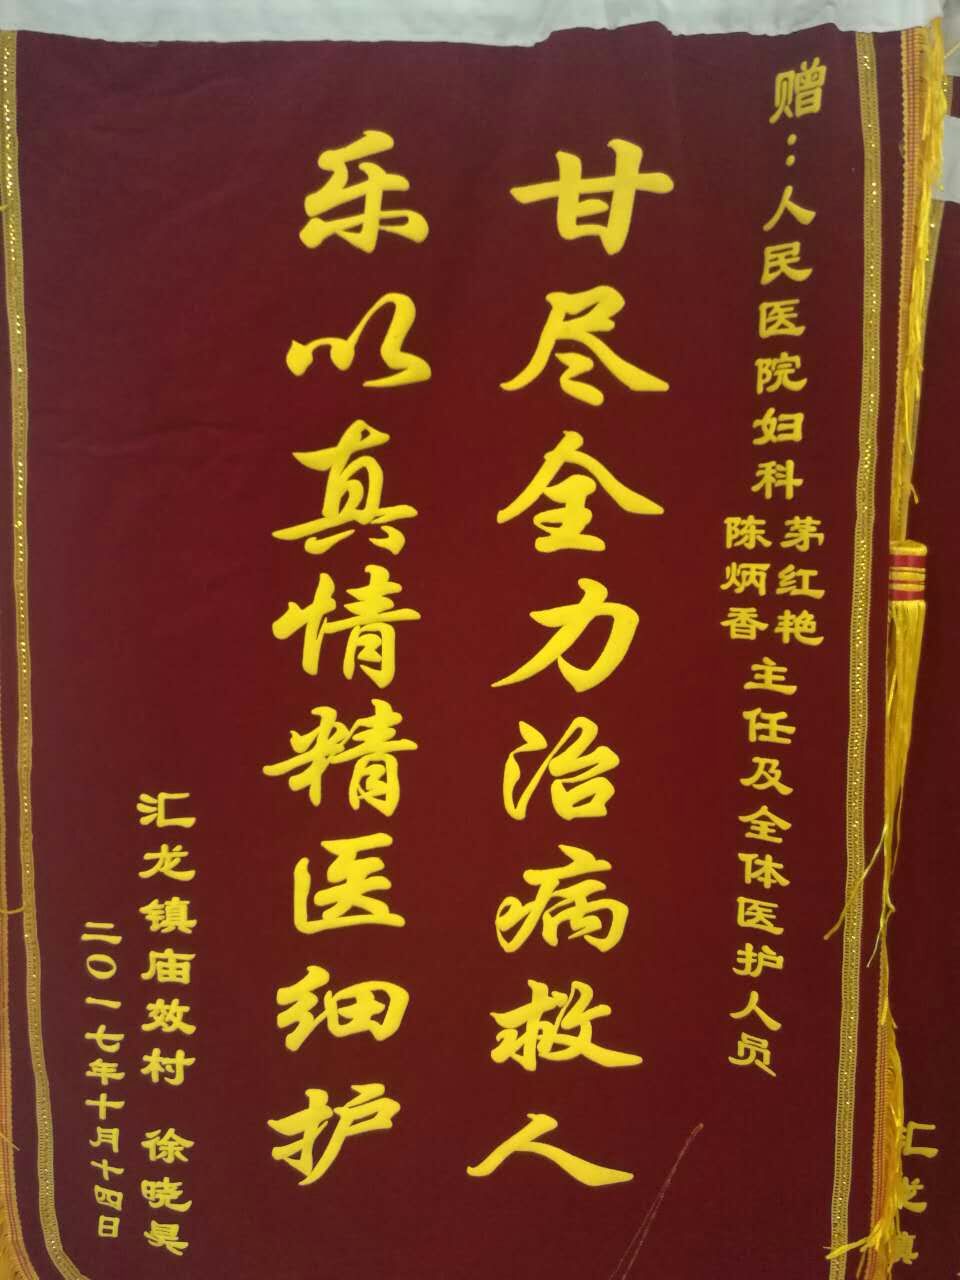 赠：人民医院妇科
茅红艳
陈炳香
主任及全体医护人员
甘尽全力治病救人
乐以真情精医细护
汇龙镇庙效村 徐晓昊
二〇一七年十月十四日
汇龙镇